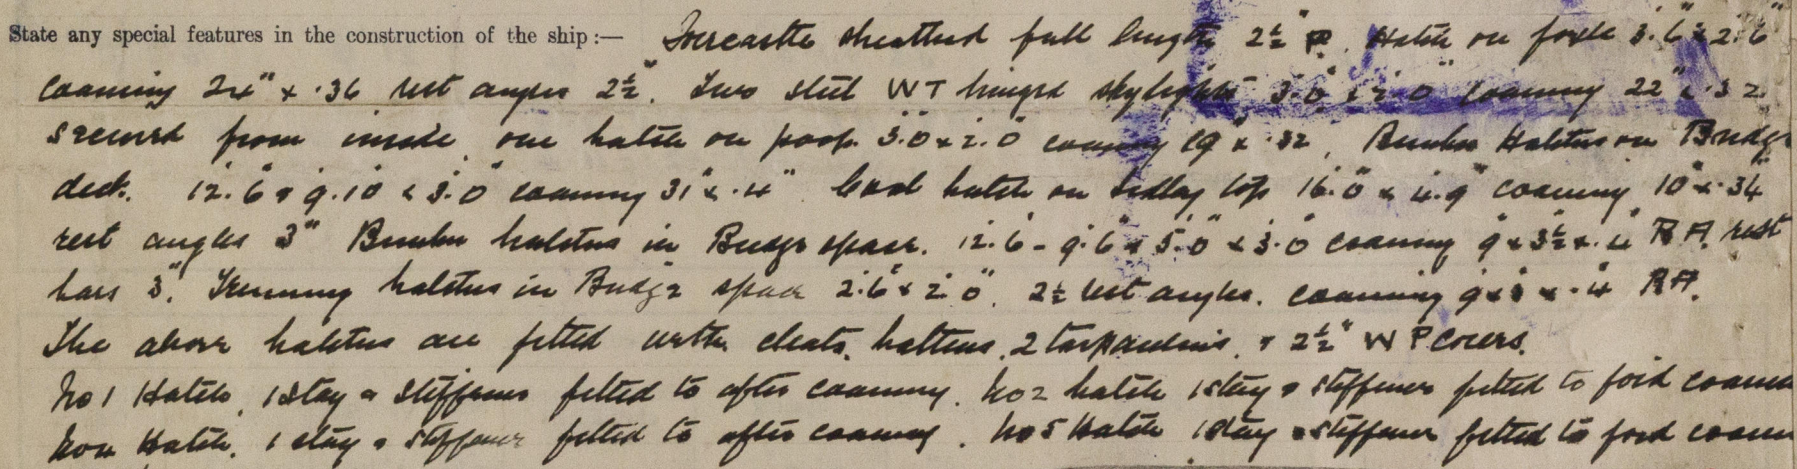 State any special features in the construction of the ship :— Forecastle sheathed full length 2½" P. Hatch on foxle 3'.6" x 2'.6"
coaming 24" x .36 rest angles 2½". Two steel WT hinged skylights 3'.0" x 2'.0" coaming 22" x .32
secured from inside, one hatch on poop 3'.0" x 2'.0" coaming 19" x .32, Bunker Hatches on Bridge
deck. 12'.6" & 9'.10" x 3'.0" coaming 31" x .4" Coal hatch on fidley top 16'.0" x 4'.9" coaming 10" x .34"
rest angles 3" Bunker hatches in Bridge space. 12'.6" - 9'.6" x 5'.0" x 3'.0" coaming 9" x 3½ x .4" BA. rest
bars 3". Trimming hatches in Bridge space 2'.6" x 2'.0". 2½ rest angles. coaming 9" x 3 x .4" BA.
The above hatches are fitted with cleats, battens, 2 tarpaulins, & 2½" W P covers.
No 1 Hatch, 1 stay & stiffener fitted to after coaming. No 2 hatch 1 stay & stiffener fitted to ford coam
No 4 Hatch, 1 stay & stiffener fitted to after coaming. No 5 Hatch 1 stay & stiffener fitted to ford coam